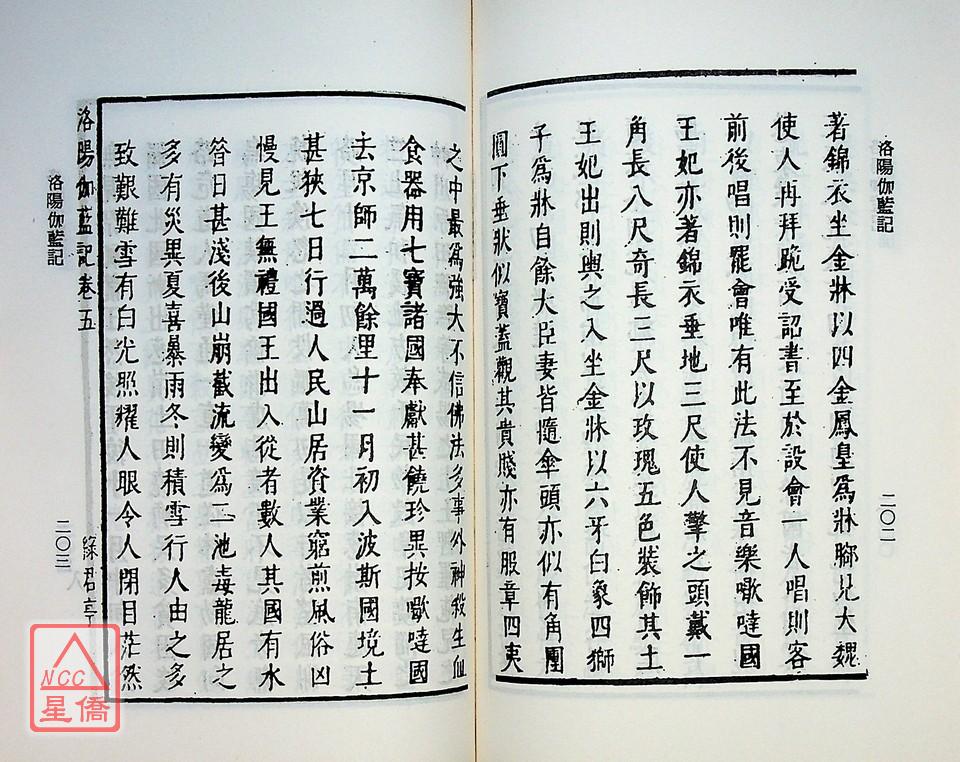 洛陽伽藍記
二〇二
著錦衣坐金牀以四金鳳皇爲牀腳見大魏
使人再拜跪受詔書至於設會一人唱則客
前後唱則罷會唯有此法不見音樂嚈噠國
王妃亦著錦衣垂地三尺使人擎之頭戴一
角長八尺奇長三尺以玫瑰五色裝飾其上
王妃出則輿之入坐金牀以六牙白象四獅
子爲牀自餘大臣妻皆隨傘頭亦似有角團
圓下垂狀似寶蓋觀其貴賤亦有服章四夷
之中最爲強大不信佛法多事外神殺生血
食器用七寶諸國奉獻甚饒珍異按嚈噠國
去京師二萬餘里十一月初入波斯國境土
甚狹七日行過人民山居資業窮煎風俗凶
慢見王無禮國王出入從者數人其國有水
昝日甚淺後山崩截流變爲二池毒龍居之
多有災異夏喜暴雨冬則積雪行人由之多
致艱難雪有白光照耀人眼令人閉目茫然
洛陽伽藍記卷五
綠君亭
洛陽伽藍記
二〇三
NCC
星僑